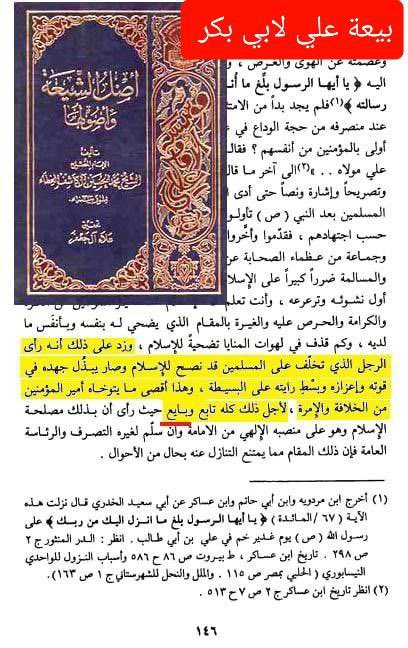 بيعة علي لابي بكر
أصل الشيعة
وأصولها
تأليف
الإمام المصلح
الشيخ محمد الحسين آل كاشف الغطاء
تحقيق
علاء آل جعفر
وعصمته عن الهوى والغرض ،
اليه ﴿ يا أيها الرسول بلّغ ما أُنـ
رسالته ﴾(١) فلم يجد بداً من الامتـ
عند منصرفه من حجة الوداع في
أولى بالمؤمنين من أنفسهم ؟ فقالـ
علي مولاه .. »(٢) إلى آخر ما قال
وتصريحاً وإشارة ونصاً حتى أدى ا
المسلمين بعد النبي (ص) تأولـو
حسب اجتهادهم ، فقدّموا وأخّروا
وجماعة من عظماء الصحابة عن
والمسالمة ضرراً كبيراً على الإسلا
أول نشوئه وترعرعه ، وأنت تعلم
والكرامة والحرص عليه والغيرة بالمقام الذي يضحي له بنفسه وبأنفَس ما
لديه ، وكم قذف في لهوات المنايا تضحيةً للإسلام ، وزد على ذلك أنه رأى
الرجل الذي تخلّف على المسلمين قد نصح للإسلام وصار يبذُل جهده في
قوته وإعزازه وبسْطِ رايته على البسيطة ، وهذا أقصى ما يتوخاه أمير المؤمنين
من الخلافة والإمرة ، لأجل ذلك كله تابع وبايع حيث رأى أن بذلك مصلحة
الإسلام وهو على منصبه الإلهي من الامامة وان سلّم لغيره التصرف والرئاسة
العامة فإن ذلك المقام مما يمتنع التنازل عنه بحال من الأحوال .
(١) أخرج ابن مردويه وابن أبي حاتم وابن عساكر عن أبي سعيد الخدري قال نزلت هذه
الآية (٦٧ /المائدة) ﴿ يا أيها الرسول بلغ ما انزل اليك من ربك ﴾ على
رسول الله (ص) يوم غدير خم في علي بن أبي طالب . انظر : الدر المنثور ج ٢
ص ٢٩٨ . تاريخ ابن عساكر ، ط بيروت ص ٨٦ ح ٥٨٦ وأسباب النزول للواحدي
النيسابوري (الحلبي بمصر ص ١١٥ . والملل والنحل للشهرستاني ج ١ ص ١٦٣).
(٢) انظر تاريخ ابن عساكر ج ٢ ص ٧ ح ٥١٣ .
١٤٦